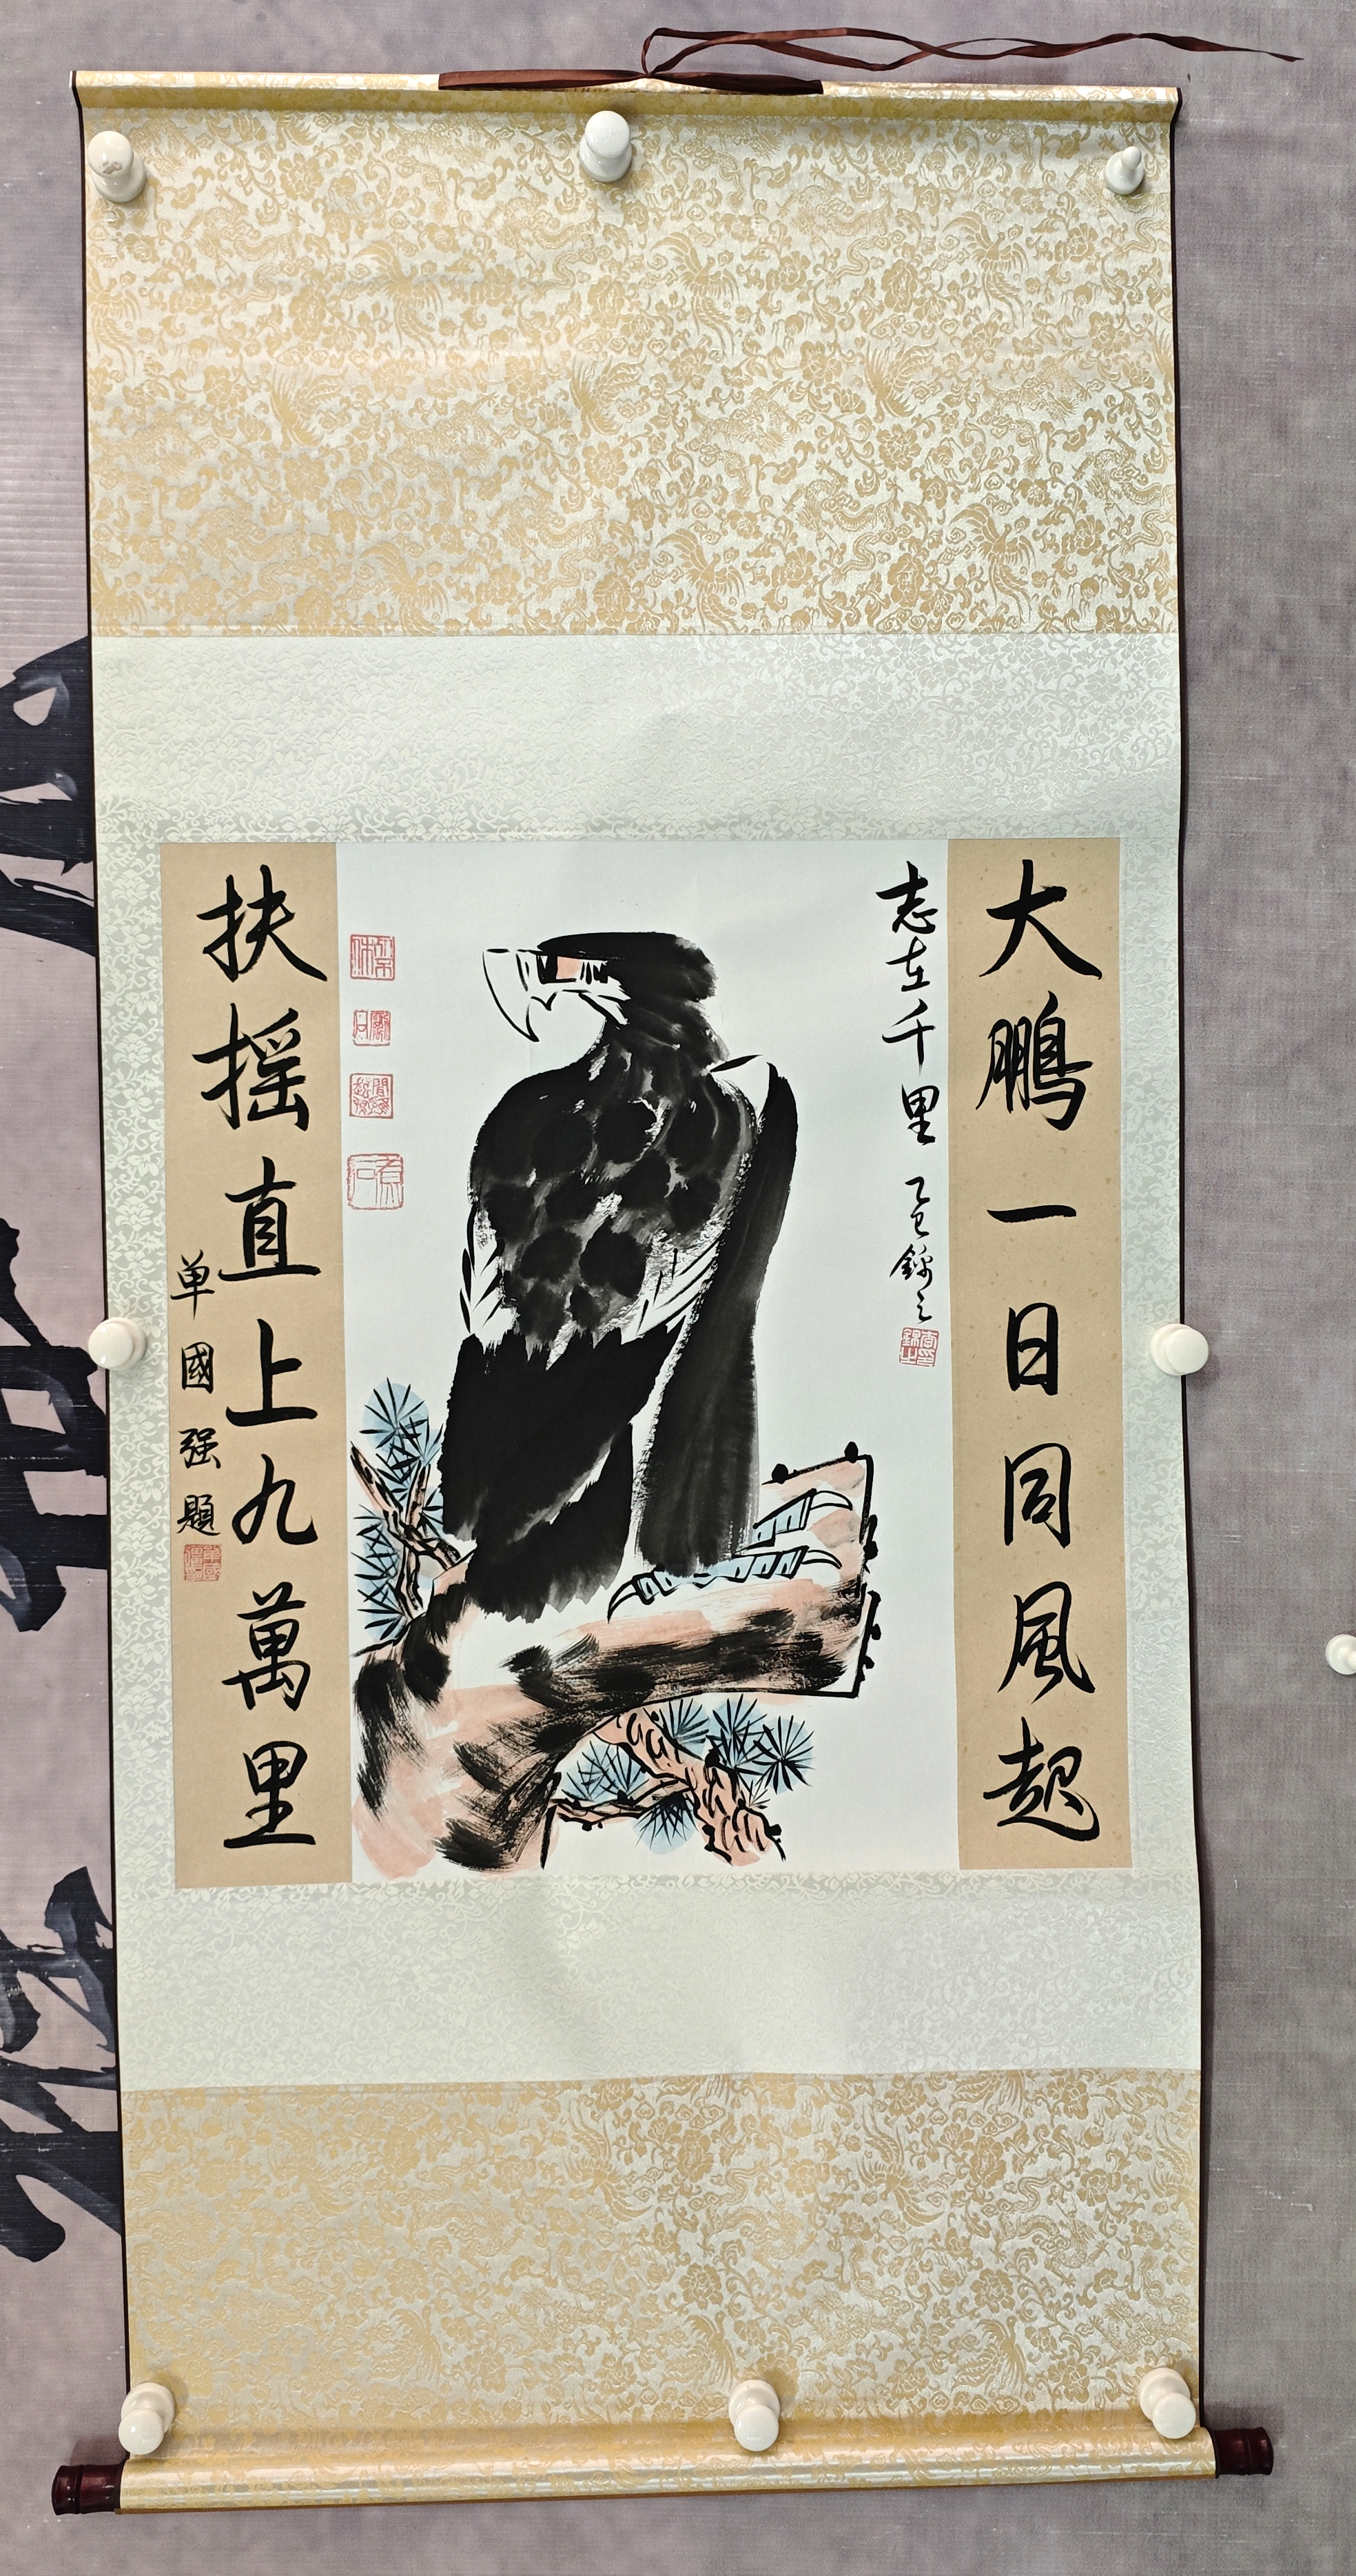 大鵬一日同風起
志在千里
乙巳錦之
扶摇直上九萬里
单國强題